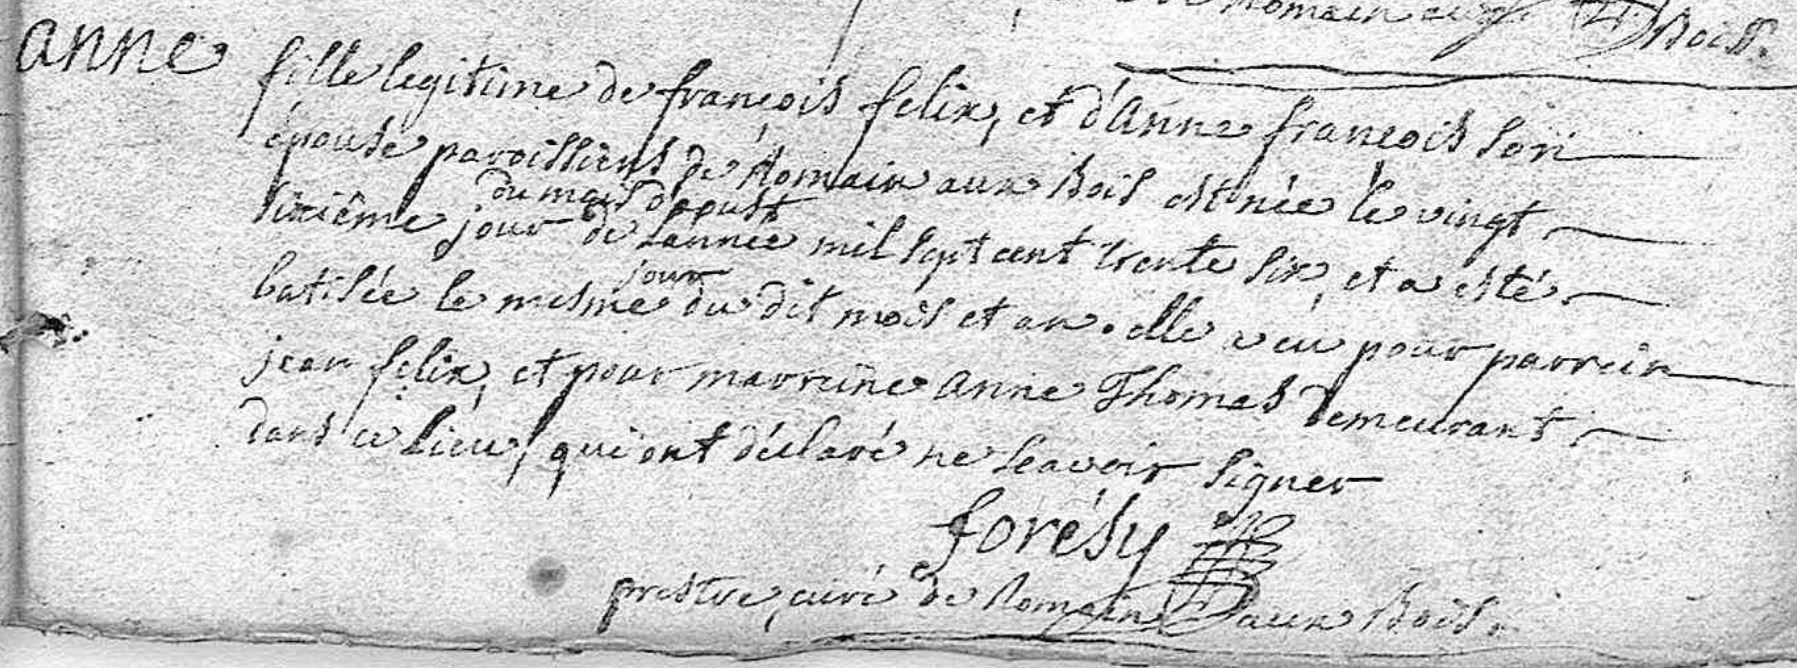 Romain aux Bois.
anne
fille legitime de françois felix, et d'Anne françois son
épouse paroissiens de Romain aux Bois est née le vingt
du mois d'aoust
sixiême jour de L'année mil sept cent trente six, et a esté
jour
batisée le mesme du dit mois et an. elle a eu pour parrein
jean felix, et pour marreine Anne Thomas Demeurant
dans ce Lieu, qui ont déclaré ne sçavoir signer
forésy
prestre, curé de Romain aux Bois.